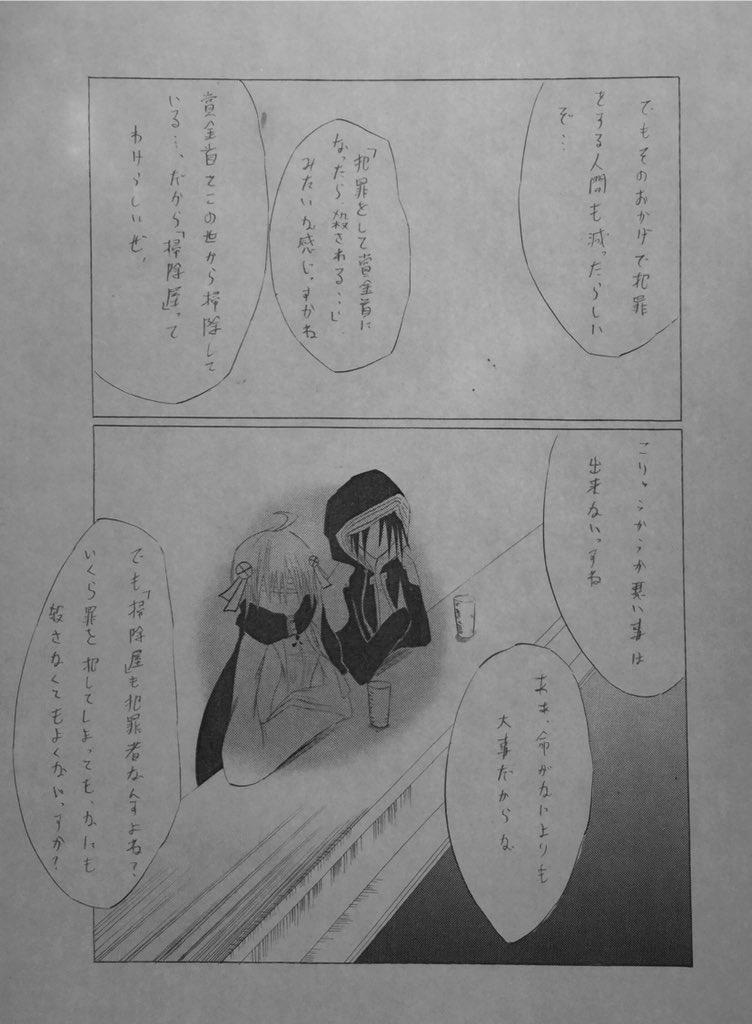 でもそのおかげで犯罪
をする人間も減ったらしい
ぞ…
「犯罪をして賞金首に
なったら殺される…」
みたいな感じっすかね
賞金首をこの世から掃除して
いる…、だから「掃除屋」って
わけらしいぜ。
こりゃうかうか悪い事は
出来ないっすね
まぁ、命がなによりも
大事だからな
でも「掃除屋」も犯罪者なんすよね?
いくら罪を犯してしまっても、なにも
殺さなくてもよくないっすか?